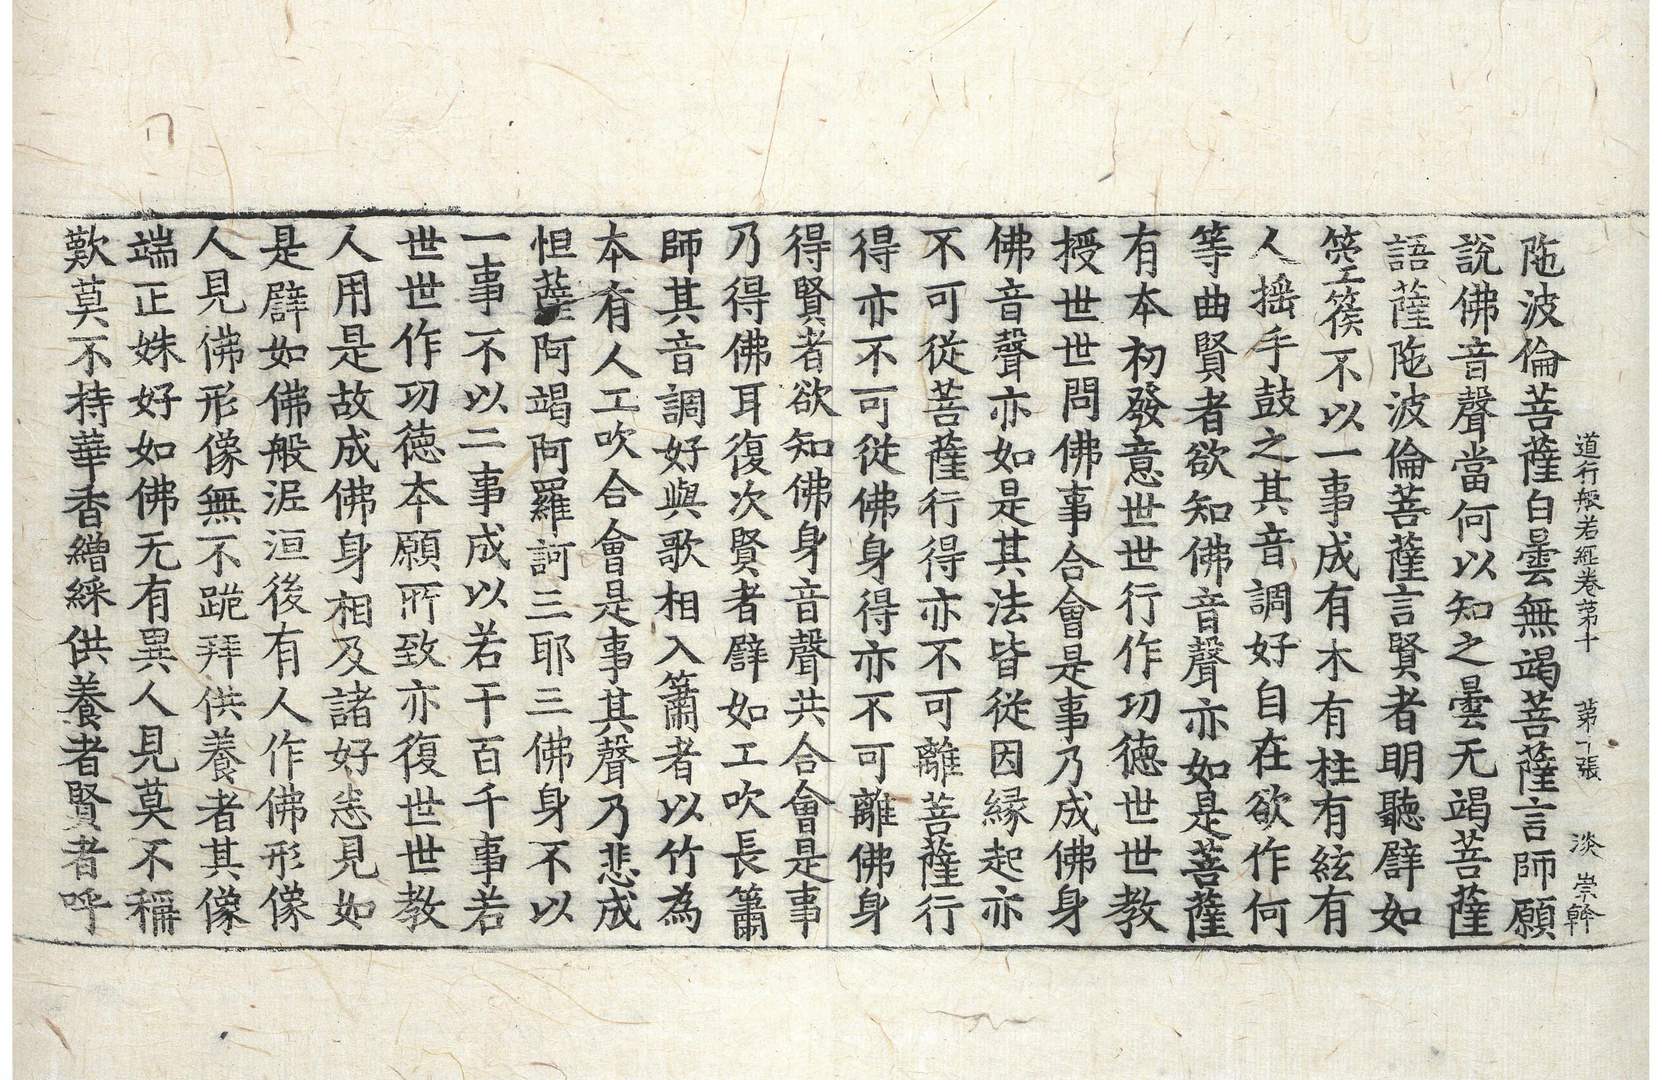 道行般若經卷苐十　苐十張　淡　崇幹
陁波倫菩薩白曇無竭菩薩言師願
說佛音聲當何以知之曇无竭菩薩
語薩陁波倫菩薩言賢者明聽譬如
箜篌不以一事成有木有柱有絃有
人搖手鼓之其音調好自在欲作何
等曲賢者欲知佛音聲亦如是菩薩
有本初發意世世行作功德世世教
授世世問佛事合會是事乃成佛身
佛音聲亦如是其法皆從因緣起亦
不可從菩薩行得亦不可離菩薩行
得亦不可從佛身得亦不可離佛身
得賢者欲知佛身音聲共合會是事
乃得佛耳復次賢者譬如工吹長簫
師其音調好與歌相入簫者以竹為
本有人工吹合會是事其聲乃悲成
怛薩阿竭阿羅訶三耶三佛身不以
一事不以二事成以若干百千事若
世世作功德本願所致亦復世世教
人用是故成佛身相及諸好悉見如
是譬如佛般泥洹後有人作佛形像
人見佛形像無不跪拜供養者其像
端正姝好如佛无有異人見莫不稱
歎莫不持華香繒綵供養者賢者呼